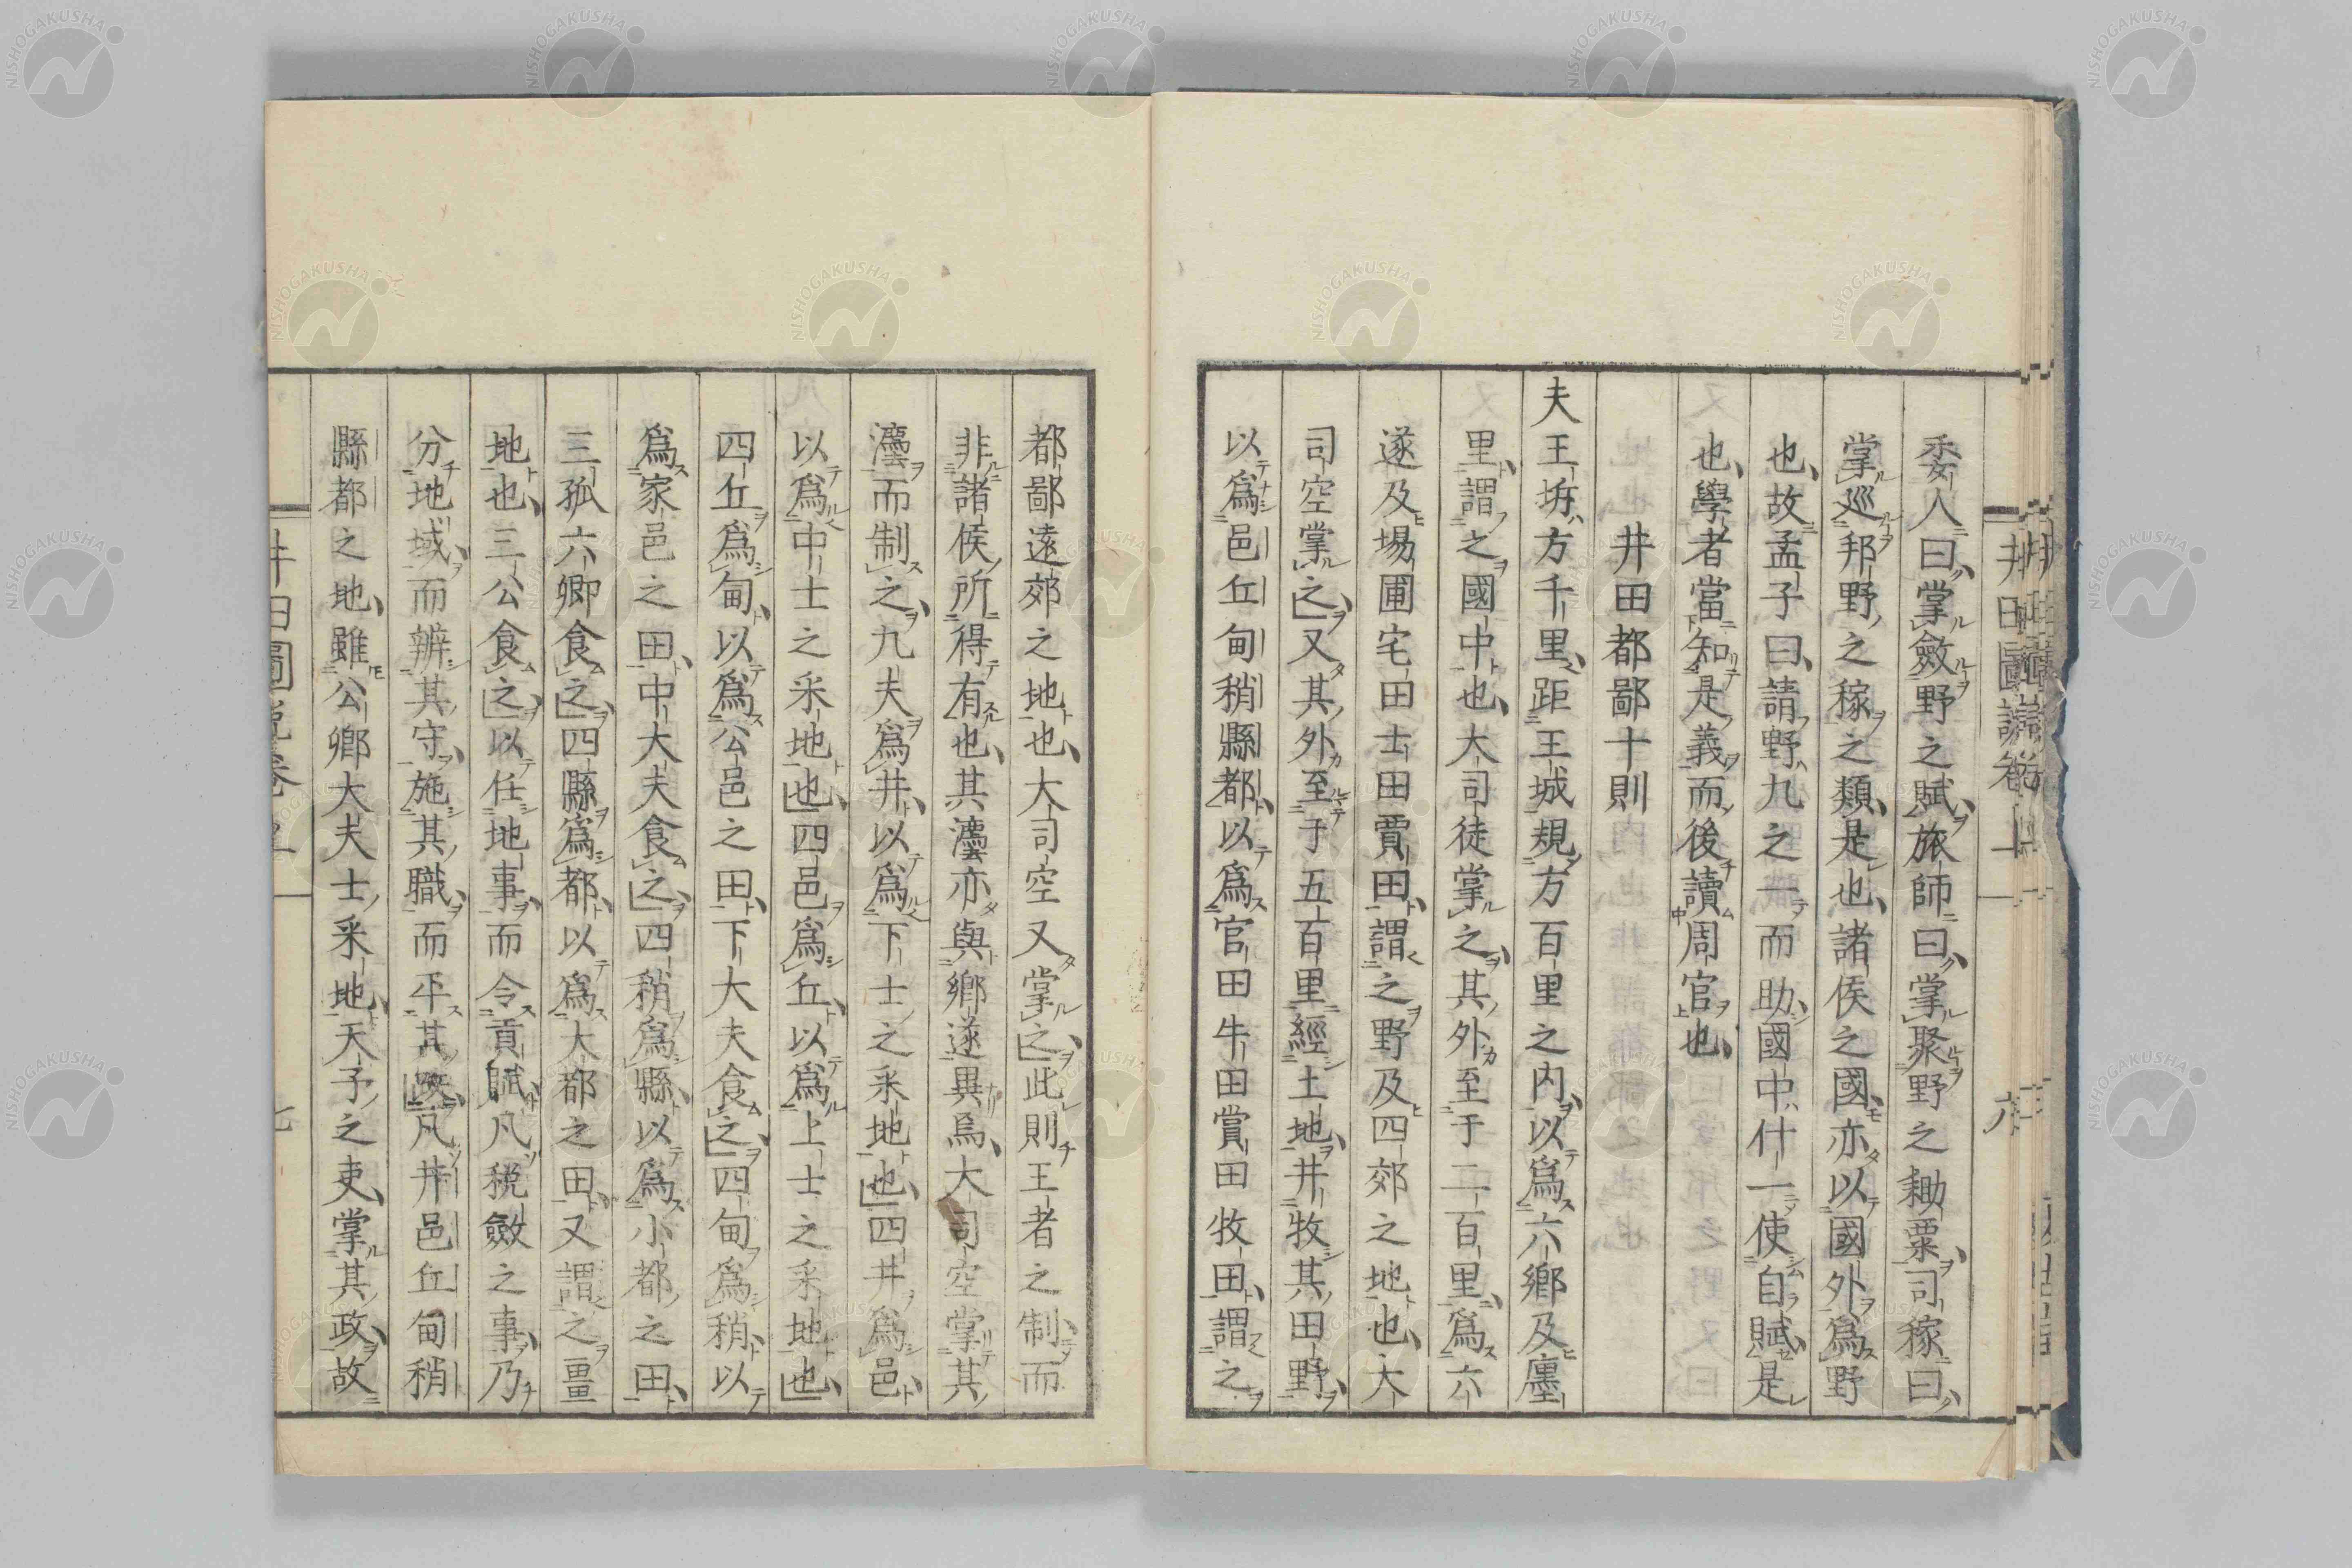 委人曰掌斂野之賦旅師曰掌聚野之耡粟司稼曰
掌巡邦野之稼之類是也諸侯之國亦以國外爲野
也故孟子曰請野九之一而助國中什一使自賦是
也學者當知是義而後讀周官也
井田都鄙十則
夫王坼方千里距王城規方百里之內以爲六鄉及廛
里謂之國中也大司徒掌之其外至于二百里爲六
遂及場圃宅田士田賈田謂之野及四郊之地也大
司空掌之又其外至于五百里經土地井牧其田野
以爲邑丘甸稍縣都以爲官田牛田賞田牧田謂之
都鄙遠郊之地也大司空又掌之此則王者之制而
非諸侯所得有也其灋亦與鄉遂異焉大司空掌其
灋而制之九夫爲井以爲下士之采地也四井爲邑
以爲中士之采地也四邑爲丘以爲上士之采地也
四丘爲甸以爲公邑之田下大夫食之四甸爲稍以
爲家邑之田中大夫食之四稍爲縣以爲小都之田
三孤六卿食之四縣爲都以爲大都之田又謂之畺
地也三公食之以任地事而令貢賦凡稅斂之事乃
分地域而辨其守施其職而平其政凡井邑丘甸稍
縣都之地雖公卿大夫士采地天子之吏掌其政故
井田圖說卷上
六
NISHOGAKUSHA